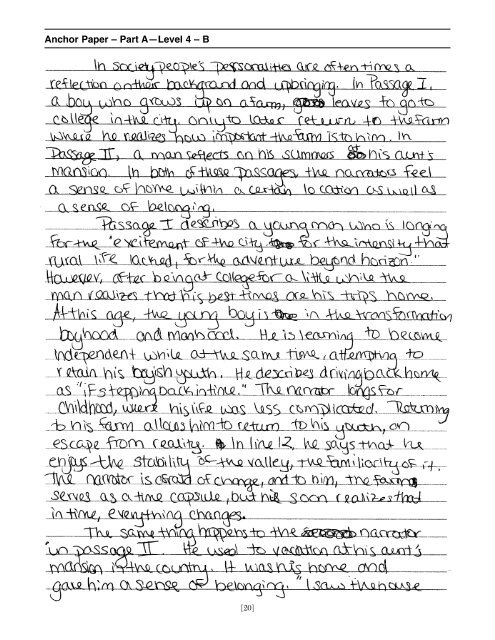 Anchor Paper – Part A—Level 4 – B
In society people's personalities are often times a
reflection on their background and upbringing. In Passage I,
a boy who grows up on a farm, leaves to go to
college in the city only to later return to the farm
where he realizes how important the farm is to him. In
Passage II, a man reflects on his summers at his aunt's
mansion. In both of these passages the narrators feel
a sense of home within a certain location as well as
a sense of belonging.
Passage I describes a young man who is longing
for the "excitement of the city for the intensity that
rural life lacked, for the adventure beyond horizon."
However, after being at college for a little while the
man realizes that his best times are his trips home.
At this age, the young boy is in the transformation
boyhood and manhood. He is learning to become
independent while at the same time, attempting to
retain his boyish youth. He describes driving back home
as "if stepping back in time." The narrator longs for
childhood, were his life was less complicated. Returning
to his farm allows him to return to his youth, an
escape from reality. In line 12, he says that he
enjoys the stability of the valley, the familiarity of it.
The narrator is afraid of change, and to him, the farm
serves as a time capsule, but he soon realizes that
in time, everything changes.
The same thing happens to the narrator
in passage II. He used to vacation at his aunt's
mansion in the country. It was his home and
gave him a sense of belonging. "I saw the house
[20]